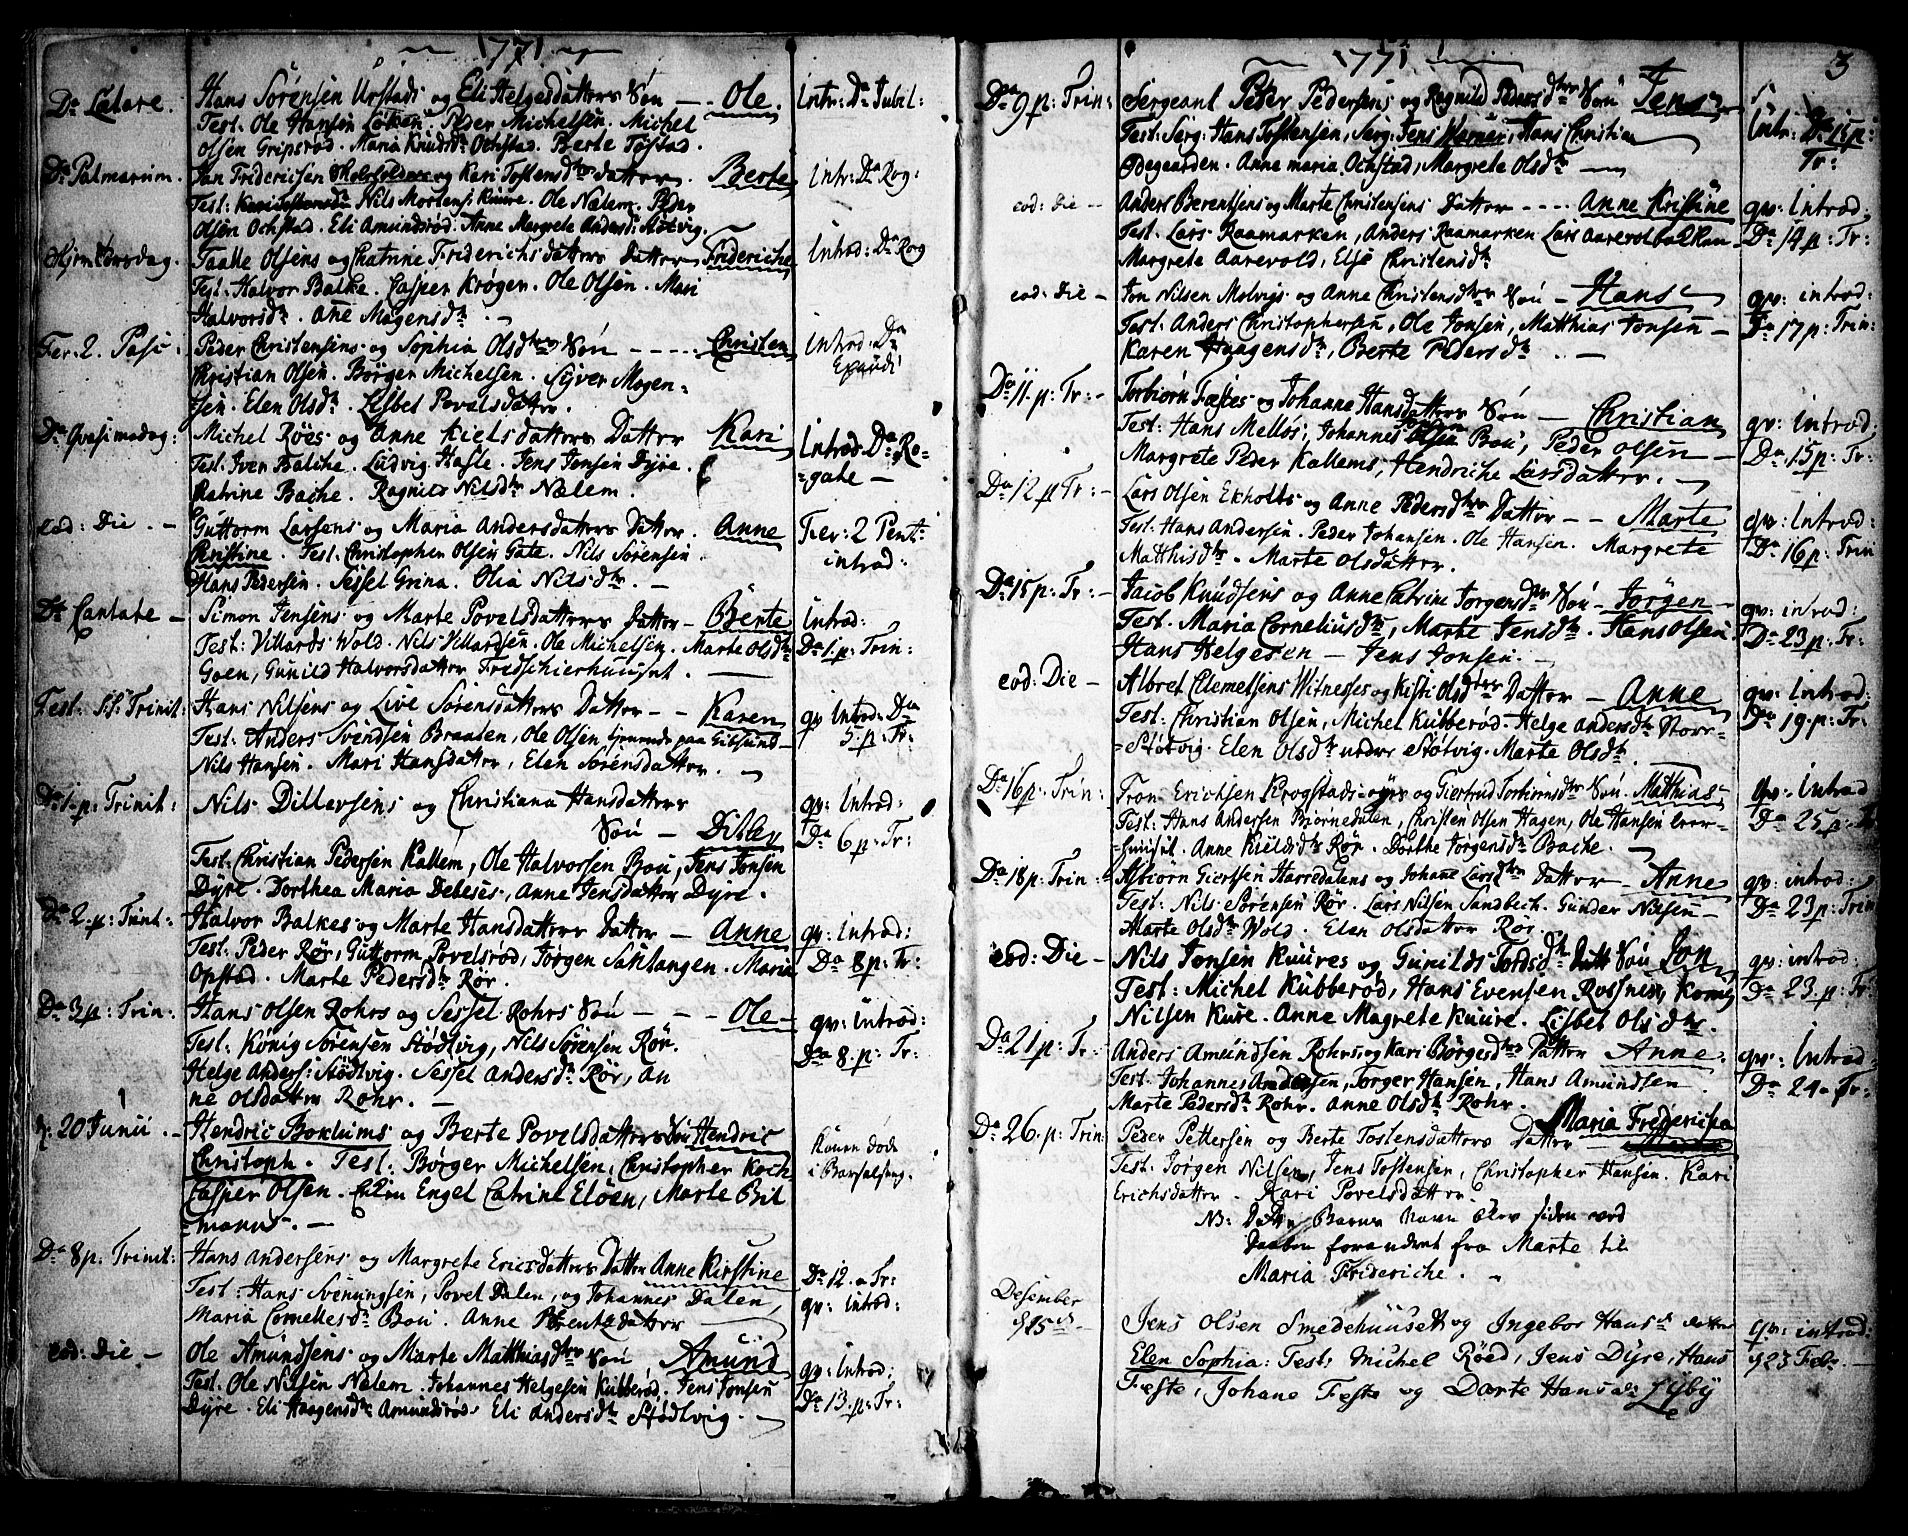 1771
Dca Lætare. Hans Sörensen Urstads og Eli Helgesdatters Sön — Ole. Intr: Dca Jubil:
Test: Ole Hansen Löken. Peder Michelsen. Michel
Olsen Gripsrød. Maria Knudsdr Ochstad. Berte Tøstad.
Dca Palmarum. Jan Fridericsen og Kari Tostensdtrs datter. Berte Intr: Dca Rog:
Test: Nils Mortens: Kuure. Ole Nælem. Peder
Olsen Ochstad. Eli Amundsrød. Anne Margrete Andersd: Støtvig.
Skjertorsdag. Taalle Olsens og Chatrine Friderichsdatters Datter Frideriche Introd: Dca Rog
Test: Halvor Balke. Casper Krøger. Ole Olsen. Mari
Halvorsdr. Ane Mogensdr. —
Fer. 2. Pasc: Peder Christensens og Sophia Olsdtrs Sön — Christen Introd: Dca Exaudi
Christian Olsen. Börger Michelsen. Syver Mogen=
=sen. Elen Olsdr. Lisbet Povelsdatter.
Dca Qvasimodog: Michel Röes og Anne Kielsdatters Datter Kari Introd Dca Ro=
Test: Iver Balche. Ludvig Hasle. Jens Jensen Dyre. =gate —
Katrine Bache. Ragnild Nilsdr Nælem.
eod: Die. — Guttorm Larsens og Maria Andersdatters Datter Anne Fer: 2 Pent:
Kristine. Test: Christopher Olsen Gate. Nils Sörensen introd:
Hans Pedersen. Sessel Grina. Olia Nilsdr. —
Dca Cantate — Simon Jensens og Marte Povelsdatters Datter — Berte Introd:
Test: Villards Wold. Nils Villardsen. Ole Michelsen. Marte Olsdr Dca 1. p: Trin:
Goen, Gunild Halvorsdatter Fredschierhuuset. —
Fest: S.S: Trinit: Hans Nilsens og Live Sörensdatters Datter — Karen qv: Introd: Dca
Test: Anders Svendsen Braaten, Ole Olsen tjenende paa Gibsund 5. p: Tr:
Nils Hansen. Mari Hansdatter, Elen Sörensdatter. —
Dca 1. p: Trinit: Nils Ditlevsens og Christiana Hansdatters qv: Introd:
Sön — Ditlev Dca 6 p: Tr:
Test: Christian Pedersen Kallem, Ole Halvorsen Bou, Jens Jensen
Dyre. Dorthea Maria Debeses, Anne Jensdatter Dyre.
Dca 2. p: Trint: Halvor Balkes og Marte Hansdatters Datter — Anne qv: Introd:
Test: Peder Rør, Guttorm Povelsrød, Jørgen Saltangen. Maria Dca 8 p: Tr:
Opstad. Marte Pedersdr Rör.
Dca 3 p: Trin: Hans Olsen Rohrs og Sessel Rohrs Sön — Ole — qv: Introd:
Test: König Sörensen Stödtvig, Nils Sörensen Rör. Dca 8. p: Tr:
Helge Anders: Stödtvig. Sessel Andersdr Rör, An
ne Olsdatter Rohr. —
d: 20 Junii. — Hendric Boklums og Berte Povelsdatters Sön Hendric Konen døde
Christoph. Test: Börger Michelsen, Christopher Koch i Barselseng.
Casper Olsen. Engel Catrine Eloen, Marte Bil
=mann. —
Dca 8 p: Trinit: Hans Andersens og Margrete Ericsdatters Datter Anne Kirstine Dca 12. p Tr:
Test: Hans Svenungsen, Povel Dalen, og Johannes Dalen, qv: introd:
Maria Cornellesdr Bou. Anne Berentzdatter —
eod: Die — Ole Amundsens og Marte Matthiasdtrs Sön Amund qv: Introd:
Test: Ole Nilsen Nælem. Johannes Helgesen Kubberød. Jens Jonsen Dca 13. p: Tr:
Dyre. Eli Haagensdr Amundsrød. Eli Andersdr Stödtvig. —
1771 3
Dca 9 p: Trin: Sergeant Peder Pedersens og Ragnild Pedersdtrs Sön Jens Intr: Dca 15 p:
Test: Serg: Hans Tostensen, Serg: Jens Warner, Hans Christian Tr:
Ødegaarden. Anne Maria Ochstad, Margrete Olsdr —
eod: Die — Anders Berentsens og Marte Christensens Datter — Anne Kristine qv: Introd:
Test: Lars Raamarken, Anders Raamarken Lars Dca 14 p: Tr:
Margrete Aarevold, Else Christensdr
eod: Die — Jon Nilsen Molvigs og Anne Christensdtrs Sön — Hans qv: introd:
Test: Anders Christophersen, Ole Jonsen, Matthias Jonsen — Dca 17 p: Trin:
Karen Haagensdr, Berte Pedersdr. —
Dca 11. p: Tr: — Torbiörn Fæstes og Johanne Hansdatters Sön — Christian qv: Introd:
Test: Hans Mellos, Johannes Bou, Peder Olsen — Dca 15 p: Tr:
Margrete Peder Kallems, Hendriche Larsdatter. —
Dca 12 p Tr: — Lars Olsen Ekholts og Anne Pedersdtrs Datter — Marte qv: Introd:
Test: Hans Andersen. Peder Johansen. Ole Hansen. Margrete Dca 16 p: Trin
Matthisdr. Marte Olsdatter.
Dca 15 p: Tr: — Jacob Knudsens og Anne Catrine Jorgensdtrs Sön — Jörgen — qv: introd:
Test. Maria Corneliusdr, Marte Jensdr. Hans Olsen. Dca 23 p: Tr:
Hans Helgesen — Jens Jonsen. —
eod: Die — Albret Clemetsens Witneses og Kisti Olsdtrs Datter — Anne qv: Introd:
Test: Christian Olsen, Michel Kubberød. Helge Andersdr Stoer= Dca 19. p: Tr:
=Støtvig. Elen Olsdr under Støtvig. Marte Olsdr.
Dca 16 p: Trin: Tron Erichsen Krogstads-øyes og Giertrud Torbiörnsdtrs Sön. Matthias qv: Introd
Test: Hans Andersen Biörnedalen, Christen Olsen Hagen, Ole Hansen Dca 25 p: Tr
=huuset. Anne Kieldsdr Rör. Dorthe Jorgensdr Bache. —
Dca 18 p: Trin: Asbiörn Giertsen Harredalens og Johane Larsdtrs Datter — Anne qv: introd:
Test: Nils Sörensen Rör. Lars Nilsen Sandbech. Gunder Nilsen — Dca 23 p: Trin
Marte Olsdr Wold. Elen Olsdatter Rör.
eod: Die — Nils Jonsen Kuures og Gunilds Tordsdr Sön Jon qv: introd:
Test: Michel Kubberød, Hans Evensen Rossnes, Konig Dca 23 p: Tr:
Nilsen Kure. Anne Magrete Kuure. Lisbet Olsdtrs.
Dca 21 p: Tr: Anders Amundsen Rohrs og Kari Börgesdtrs Datter Anne. qv: Introd:
Test. Johannes Andersen, Torger Hansen, Hans Amundsen. Dca 24 p Tr:
Marte Pedersdr Rohr. Anne Olsdr Rohr.
Dca 26. p: Trin: Peder Pettersen og Berte Tostensdatters Datter Maria Friderica
Test. Jörgen Nilsen, Jens Tostensen, Christopher Hansen. Kari
Erichsdatter. Kari Povelsdatter.
NB: Dette Barns Navn blev siden ved
Daaben forandret fra Marte til
Maria Frideriche.
Desember Jens Olsen Smedehuuset og Ingebor Hansd datter qv: introd:
Elen Sophia: Test, Michel Röed, Jens Dyre, Hans d 23 Feb:
Feste, Johane Feste og Dorte Hansd: Lysby